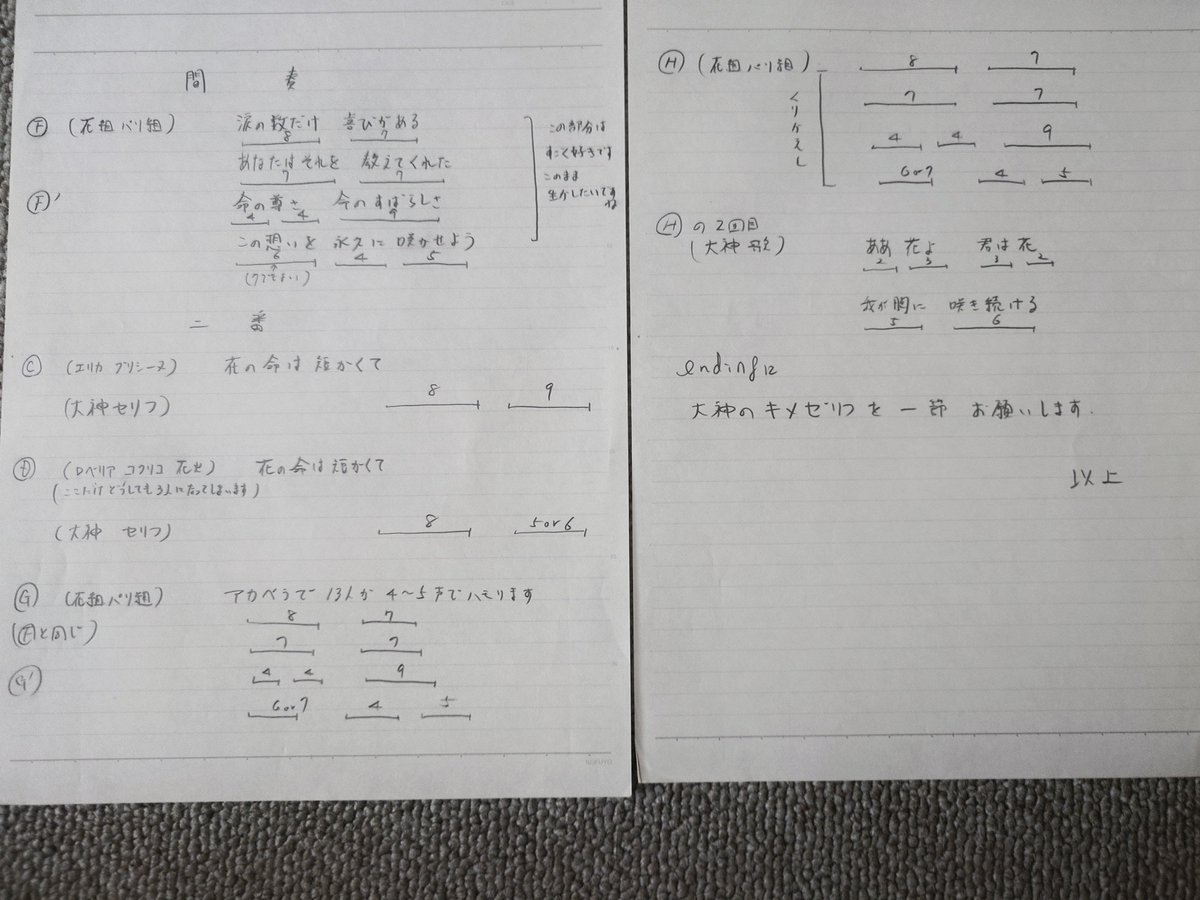 間奏
Ⓕ (花組 パリ組) 涙の数だけ 喜びがある
8 7
あなたは それを 教えてくれた
7 7
Ⓕ' 命の尊さ 今のすばらしさ
4 4 9
この想いを 永久に 咲かせよう
6 4 5
(7つでもよい)
この部分は
すごく好きです
このまま
生かしたいです
ね
二番
Ⓒ (エリカ グリシーヌ) 花の命は 短かくて
(大神セリフ) 8 9
Ⓓ (ロベリア コクリコ 花火) 花の命は短かくて
(ここだけどうしても3人になってしまいます)
(大神 セリフ) 8 5or6
Ⓖ (花組パリ組) アカペラで 13人が 4〜5声でハモります
8 7
(Ⓕと同じ) 7 7
Ⓖ' 4 4 9
6or7 4 5
KOKUYO
Ⓗ (花組 パリ組) 8 7
くりかえし
7 7
4 4 9
6or7 4 5
Ⓗ の2回目
(大神 歌) ああ 花よ 君は 花
2 3 3 2
我が胸に 咲き続ける
5 6
endingに
大神の キメゼリフ を 一節 お願いします.
以上